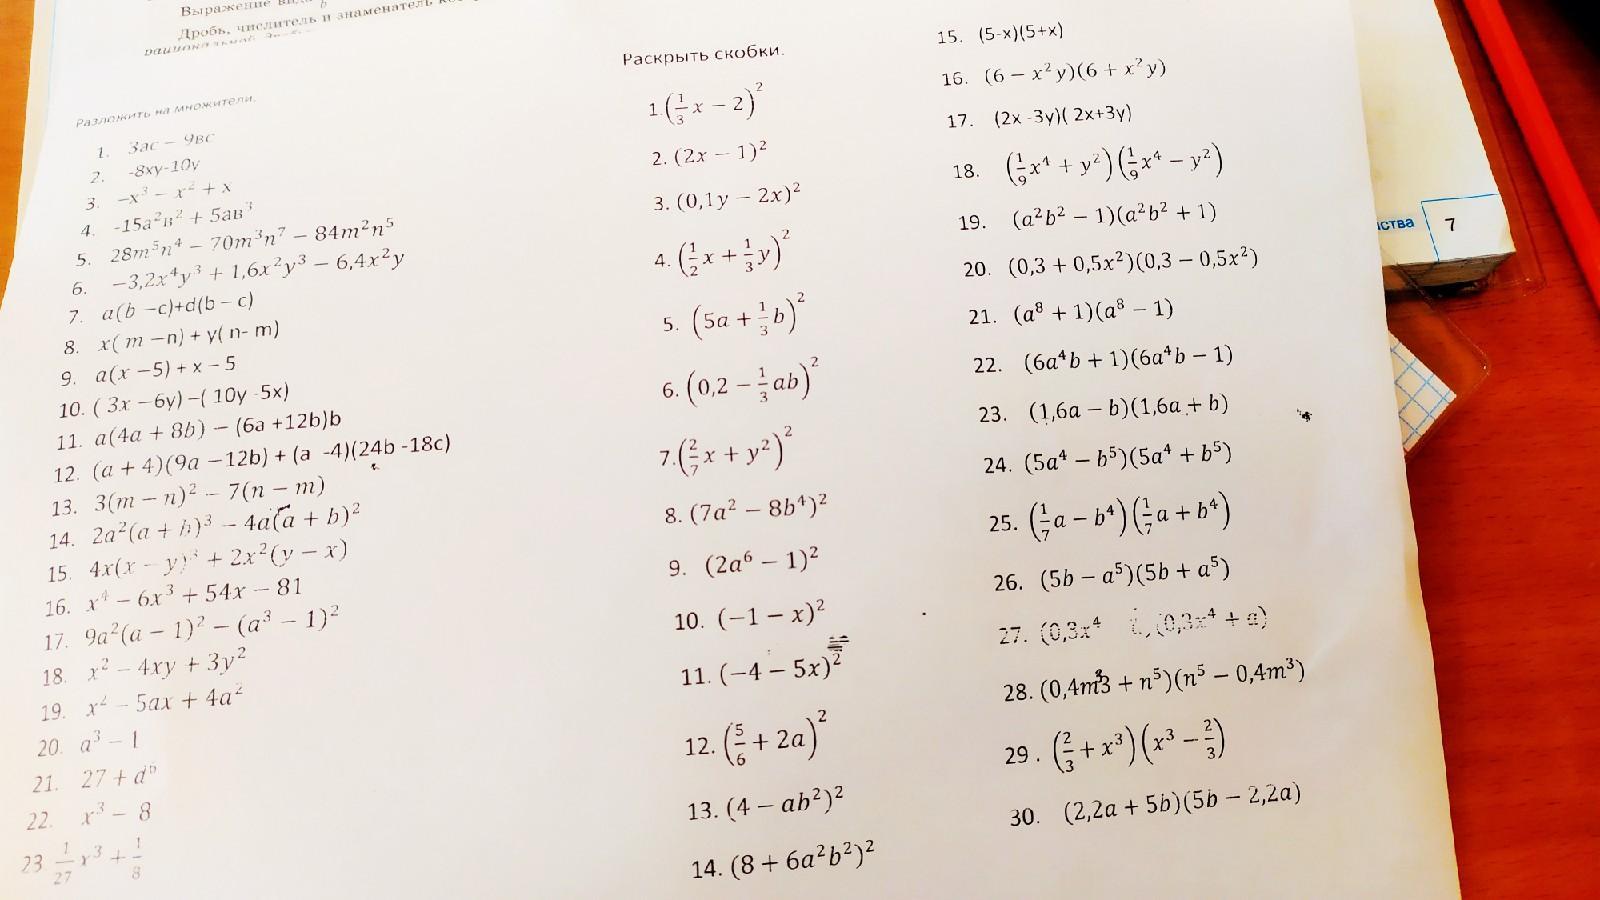 Выражение вида
Дробь, числитель и знаменатель
Разложить на множители.
1. 3ac − 9вс
2. -8xy-10y
3. −x³ − x² + x
4. -15a²в² + 5ав³
5. 28m⁵n⁴ − 70m³n⁷ − 84m²n⁵
6. −3,2x⁴y³ + 1,6x²y³ − 6,4x²y
7. a(b −c)+d(b − c)
8. x( m −n) + y( n- m)
9. a(x −5) + x − 5
10. ( 3x −6y) −( 10y -5x)
11. a(4a + 8b) − (6a +12b)b
12. (a + 4)(9a −12b) + (a -4)(24b -18c)
13. 3(m − n)² − 7(n − m)
14. 2a²(a + b)³ − 4a(a + b)²
15. 4x(x − y)³ + 2x²(y − x)
16. x⁴ − 6x³ + 54x − 81
17. 9a²(a − 1)² − (a³ − 1)²
18. x² − 4xy + 3y²
19. x² − 5ax + 4a²
20. a³ − 1
21. 27 + d⁶
22. x³ − 8
23. 1/27 x³ + 1/8
Раскрыть скобки.
1. (1/3 x − 2)²
2. (2x − 1)²
3. (0,1y − 2x)²
4. (1/2 x + 1/3 y)²
5. (5a + 1/3 b)²
6. (0,2 − 1/3 ab)²
7. (2/7 x + y²)²
8. (7a² − 8b⁴)²
9. (2a⁶ − 1)²
10. (−1 − x)²
11. (−4 − 5x)²
12. (5/6 + 2a)²
13. (4 − ab²)²
14. (8 + 6a²b²)²
15. (5-x)(5+x)
16. (6 − x²y)(6 + x²y)
17. (2x -3y)( 2x+3y)
18. (1/9 x⁴ + y²)(1/9 x⁴ − y²)
19. (a²b² − 1)(a²b² + 1)
20. (0,3 + 0,5x²)(0,3 − 0,5x²)
21. (a⁸ + 1)(a⁸ − 1)
22. (6a⁴b + 1)(6a⁴b − 1)
23. (1,6a − b)(1,6a + b)
24. (5a⁴ − b⁵)(5a⁴ + b⁵)
25. (1/7 a − b⁴)(1/7 a + b⁴)
26. (5b − a⁵)(5b + a⁵)
27. (0,3x⁴ (0,3x⁴ + a)
28. (0,4m3 + n⁵)(n⁵ − 0,4m³)
29 . (2/3 + x³)(x³ − 2/3)
30. (2,2a + 5b)(5b − 2,2a)
7